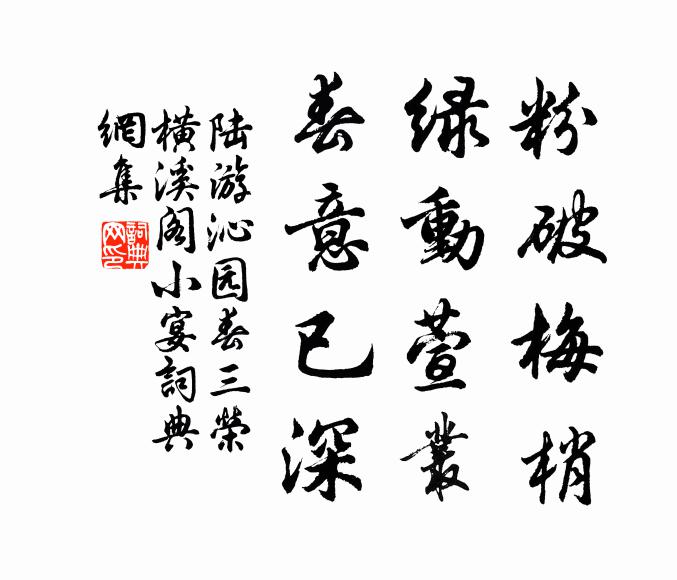 粉破梅梢
绿動萱叢
春意已深
陆游沁园春三荣
横溪阁小宴詞典
網集
詞典网印